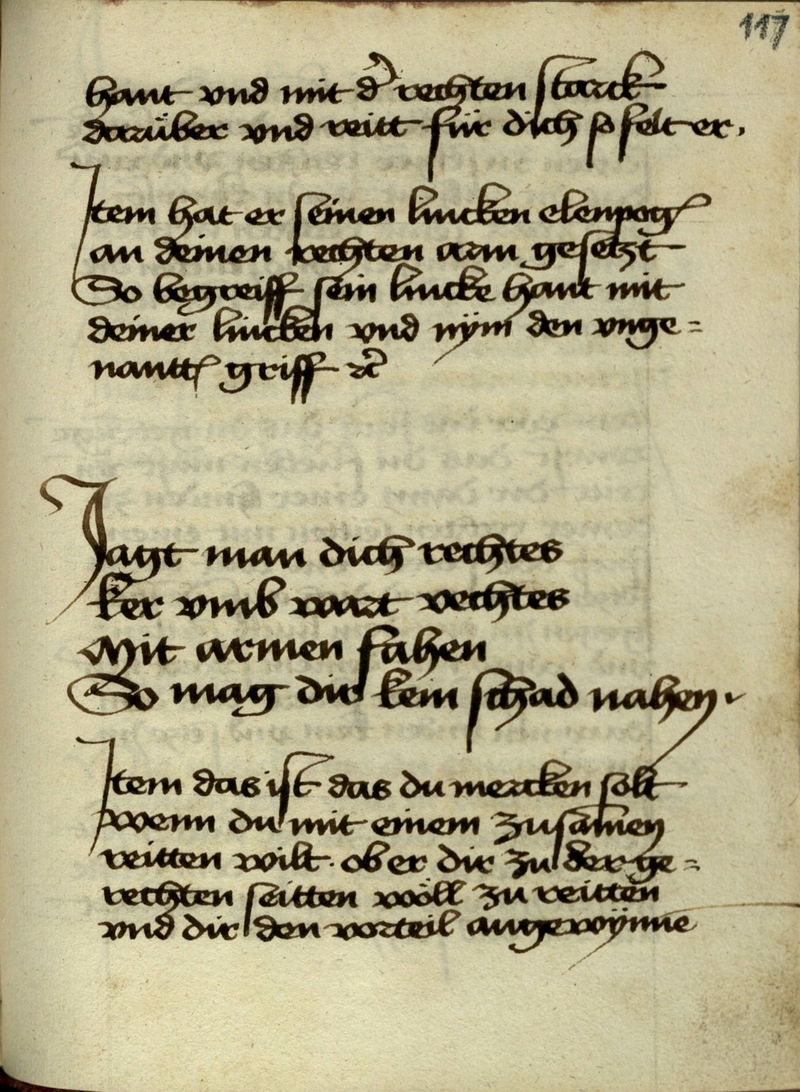 117
hant vnd mit dʼ rechten starck
darüber vnd reitt für dich so felt er,
Item hat er seinen lincken elenpogꝭ
an deinen rechten arm gesetzt
So begreiff sein lincke hant mit
deiner lincken vnd nÿm den vnge=
nanttꝭ griff ꝛc̃
Jagt man dich rechtes
ker vmb wart vechtes
Mit armen fahen
So mag dir kein schad nahen.
Item das ist das du mercken solt
wenn du mit einem zusamen
reitten wilt. ob er dir zu der ge=
rechten seitten wöll zu reitten
vnd dir den vorteil angewÿnne